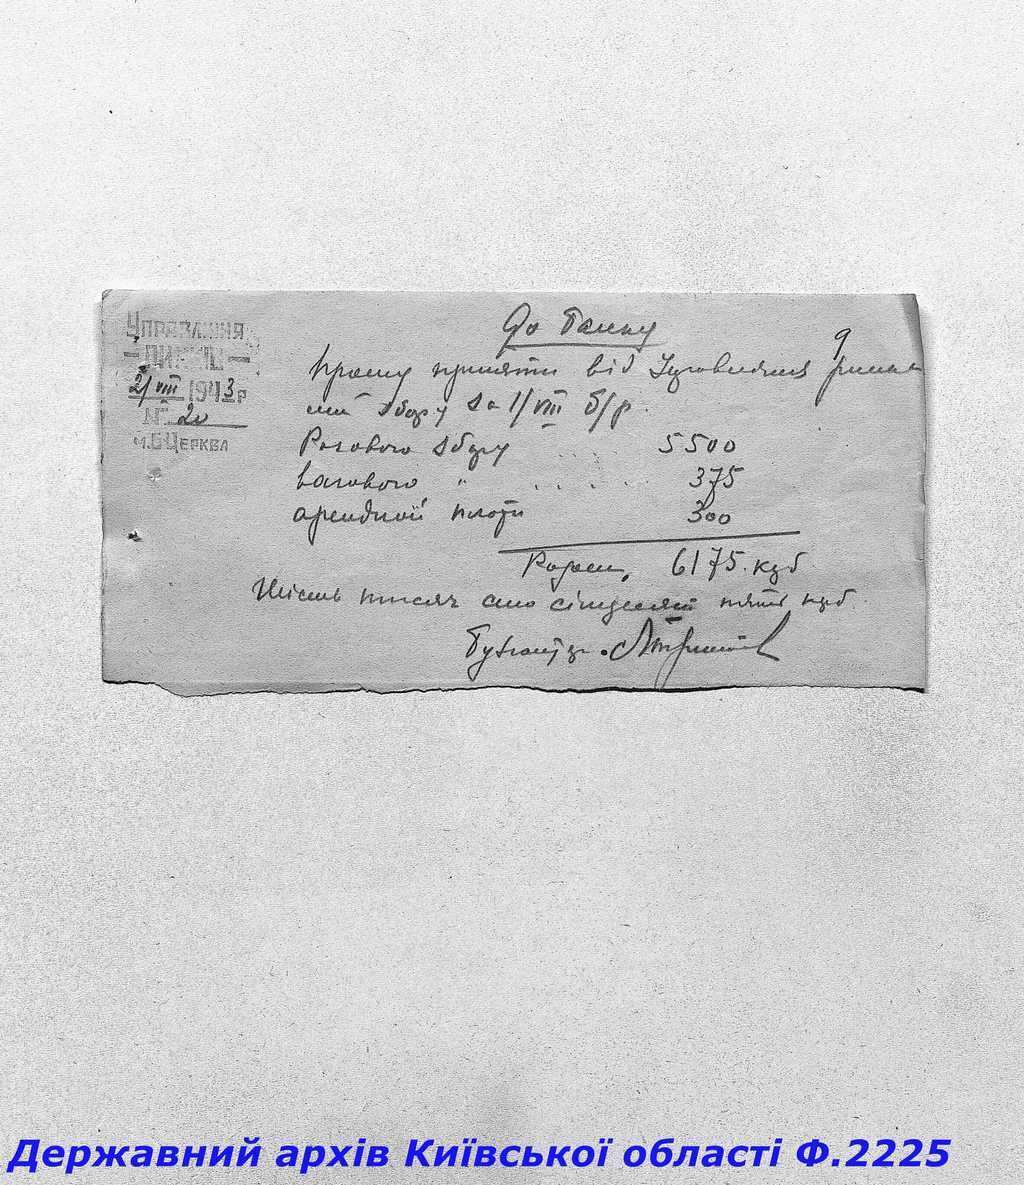 До банку
9
Управління
2/VIII 1943 р
№ 20
м. Б-Церква
Прошу прийняти від Управління
збору за 1/VIII б/р.
Рогового збору . . . 5500
вагового " . . . . . 375
арендной плати 300
Разом, 6175. крб
Шість тисяч сто сімдесят пять крб.
Державний архів Київської області Ф.2225